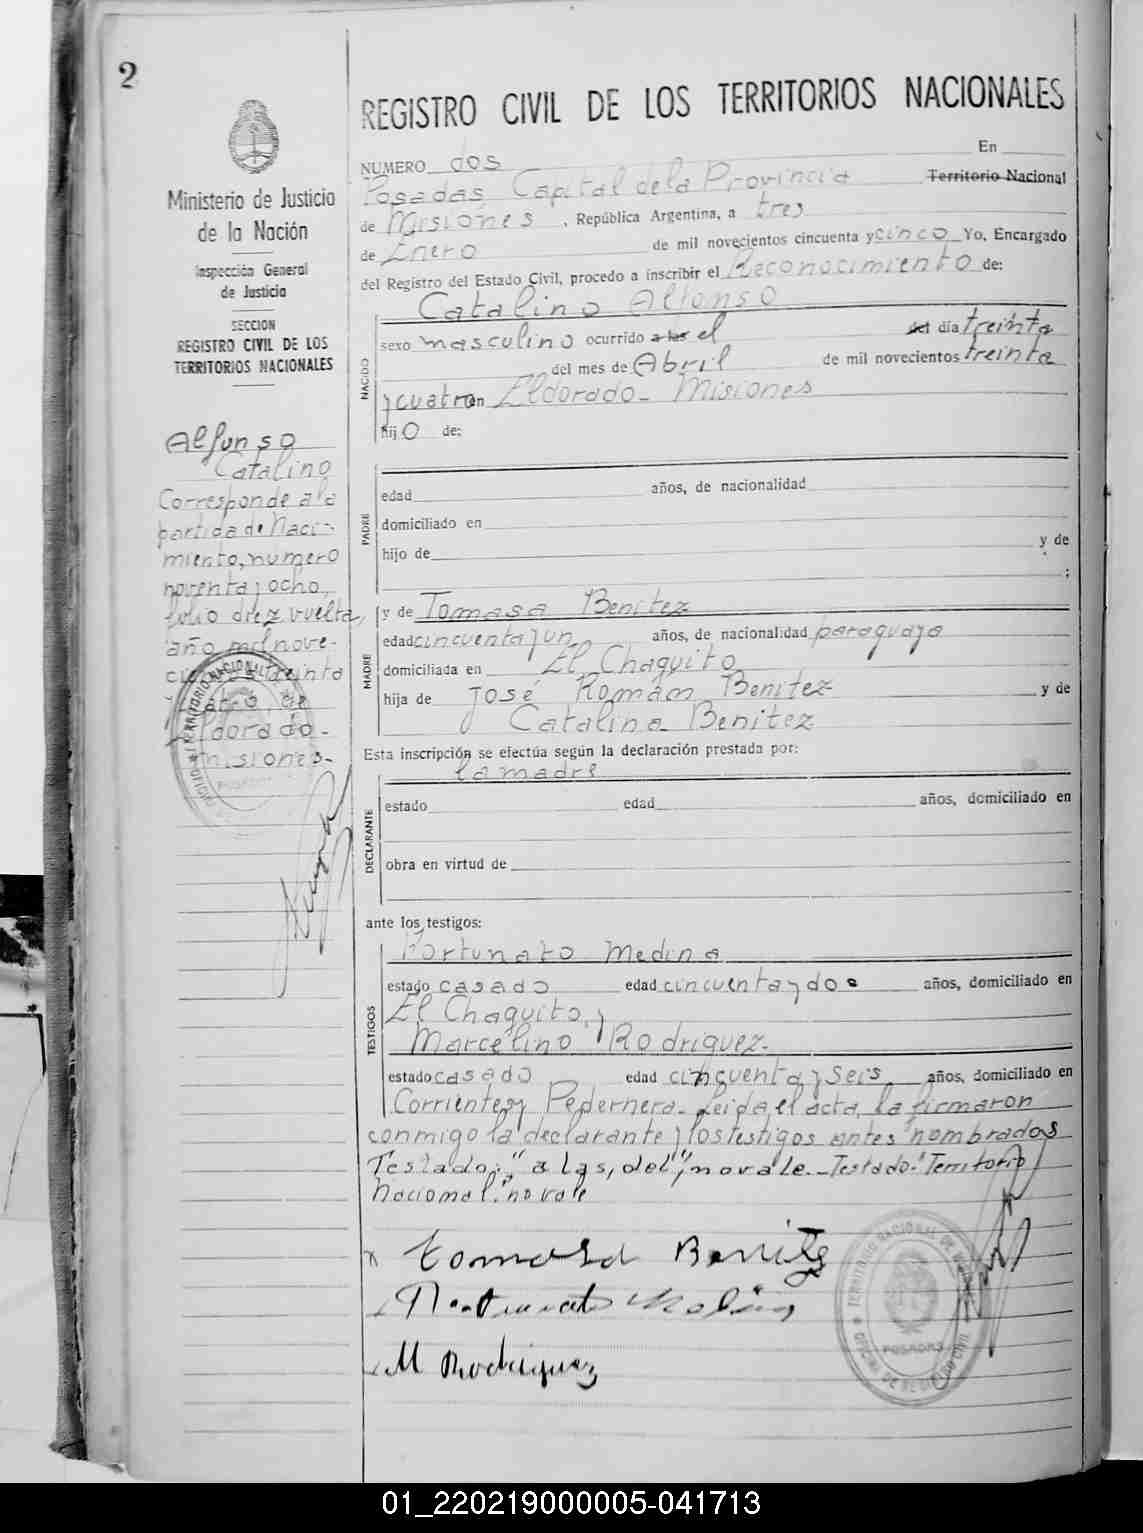 2
REGISTRO CIVIL DE LOS TERRITORIOS NACIONALES
NUMERO dos En
Posadas Capital de la Provincia Territorio Nacional
de Misiones, República Argentina, a tres
de Enero de mil novecientos cincuenta y cinco Yo, Encargado
del Registro del Estado Civil, procedo a inscribir el Reconocimiento de:
Catalino Alfonso
NACIDO
sexo masculino ocurrido a las el del día treinta
del mes de Abril de mil novecientos treinta
y cuatro en Eldorado - Misiones
hijo de:
PADRE
edad años, de nacionalidad
domiciliado en
hijo de y de
;
MADRE
y de Tomasa Benitez
edad cincuenta y un años, de nacionalidad paraguaya
domiciliada en El Chaquito
hija de José Román Benitez y de
Catalina Benitez
Esta inscripción se efectúa según la declaración prestada por:
la madre
DECLARANTE
estado edad años, domiciliado en
obra en virtud de
ante los testigos:
TESTIGOS
Fortunato Medina
estado casado edad cincuenta y dos años, domiciliado en
El Chaquito, y
Marcelino Rodriguez.
estado casado edad cincuenta y seis años, domiciliado en
Corrientes y Pedernera. Leida el acta, la firmaron
conmigo la declarante y los testigos antes nombrados
Testado: "a las, del", no vale. - Testado: "Territorio
Nacional." no vale
Tomasa Benitez
M Rodriguez
TERRITORIO NACIONAL DE
POSADAS
OFICINA DE REGISTRO CIVIL
Ministerio de Justicia
de la Nación
Inspección General
de Justicia
SECCION
REGISTRO CIVIL DE LOS
TERRITORIOS NACIONALES
Alfonso
Catalino
Corresponde a la
partida de Naci-
miento, numero
noventa y ocho,
folio diez vuelta,
año mil nove-
cientos treinta
y cuatro, de
Eldorado -
Misiones -
01_220219000005-041713